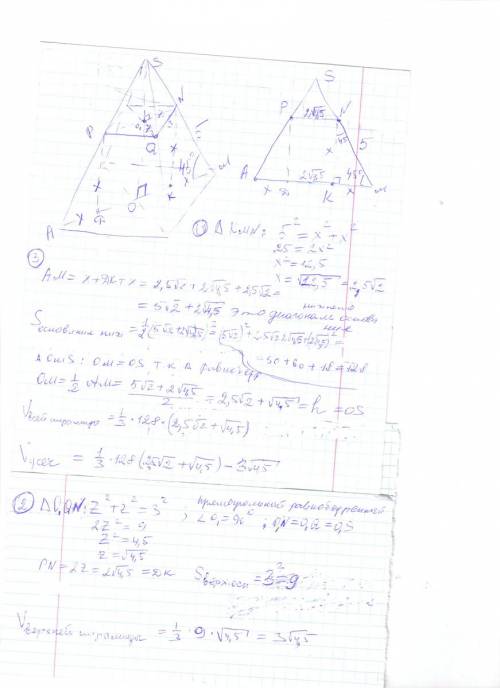 S
N
P
Q
K
M
A
O
x
S
P
2√4,5
N
5
A
x
2√4,5
K
x
45°
M
1) Δ KMN: 5² = x² + x²
25 = 2x²
x² = 12,5
x = √12,5 = 2,5√2
3
AM = x + DK + x = 2,5√2 + 2√4,5 + 2,5√2 =
= 5√2 + 2√4,5 это диагональ основа
S основания = ½(5√2+2√4,5)² = (5√2)² +
= 50 + 60 + 18 = 128
Δ OMS: OM = OS т.к Δ
OM = ½ AM = 5√2 + 2√4,5 / 2 = 2,5√2 + √4,5 = h = OS
V всей пирамиды = ⅓ · 128 · (2,5√2 + √4,5)
V усеч = ⅓ · 128 (2,5√2 + √4,5) − 3√4,5
2) Δ O₁QN: z² + z² = 3² ; прямоугольный равнобедренный
2z² = 9 ∠O₁ = 90° ; O₁N = O₁Q = O₁S
z² = 4,5
z = √4,5
PN = 2z = 2√4,5 = DK S = 3² = 9
V верхней пирамиды = ⅓ · 9 · √4,5 = 3√4,5